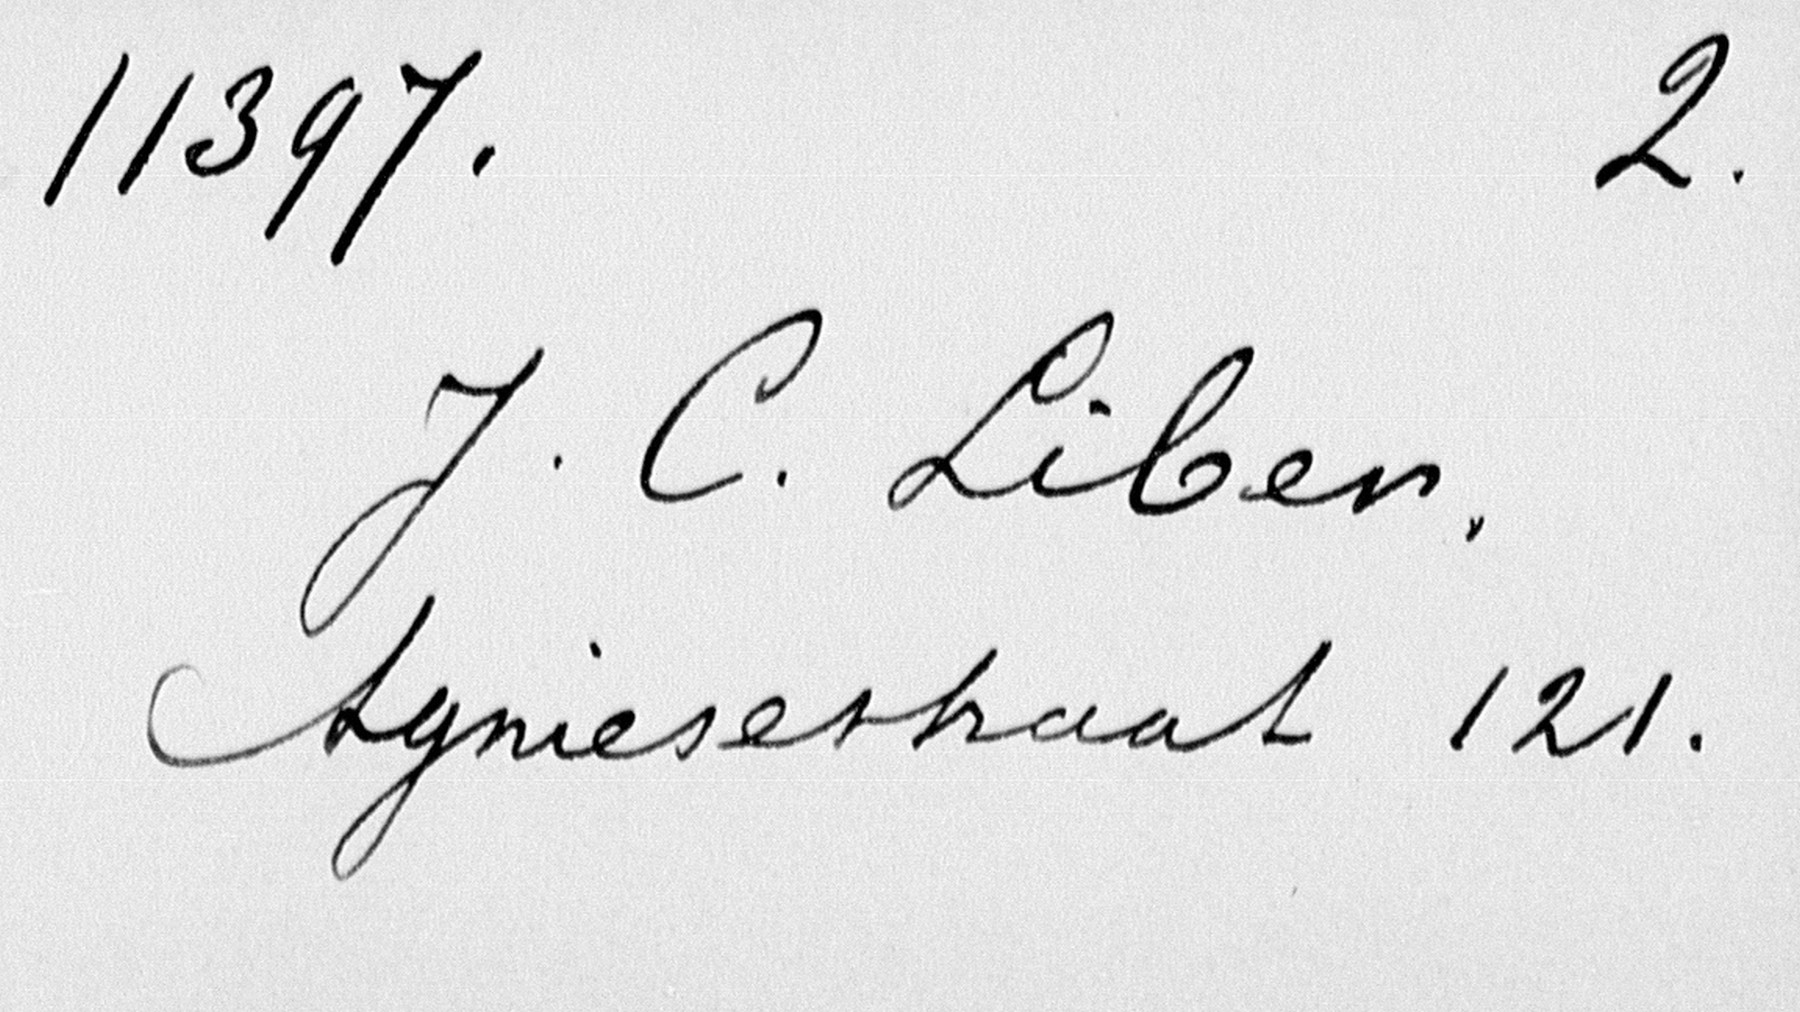 11397. 2.
J. C. Liben,
Agniesestraat 121.